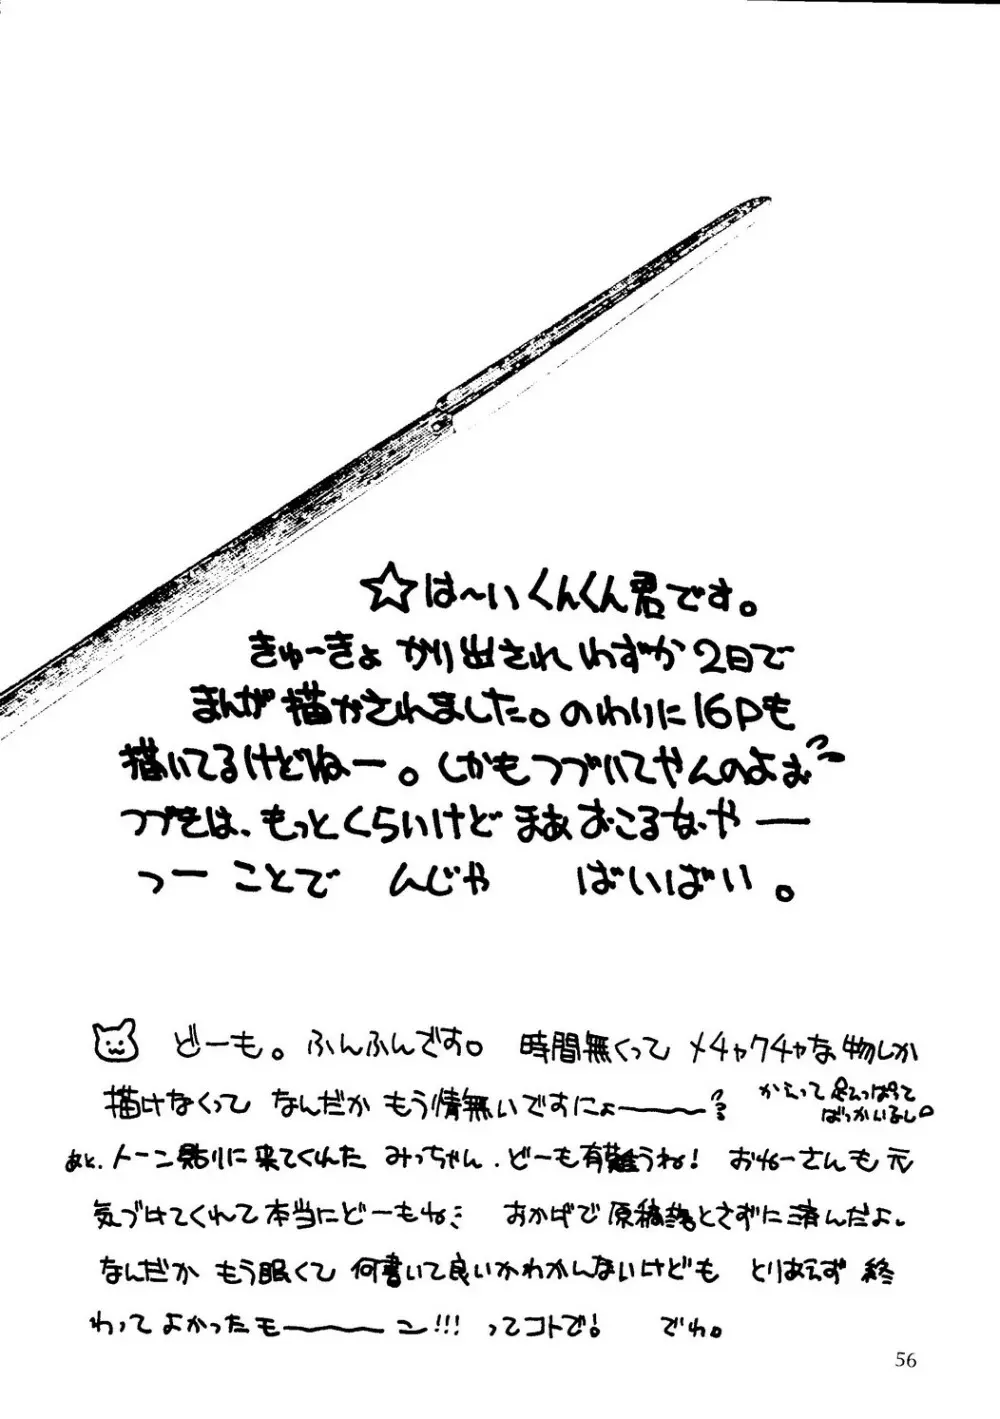 ☆は〜いくんくん君です。
きゅーきょ かり出されわずか2日で
まんが描かされました。のわりに16Pも
描いてるけどねー。しかもつづいてやんのよお
つづきは、もっとくらいけど まあおこるなやー
つーことで んじゃ ばいばい。
どーも。ふんふんです。 時間無くって メチャクチャな物しか
描けなくって なんだか もう情無いですにょ〜〜
かえって足ひっぱって
ばっかいるし。
あと、トーン貼りに来てくれた みっちゃん、どーも有難うね! おねーさんも元
気づけてくれて本当にどーもね おかげで原稿落とさずに済んだよ。
なんだか もう眠くて 何書いて良いかわかんないけども とりあえず 終
わってよかったモ〜〜ン!!! ってコトで! でわ。
56